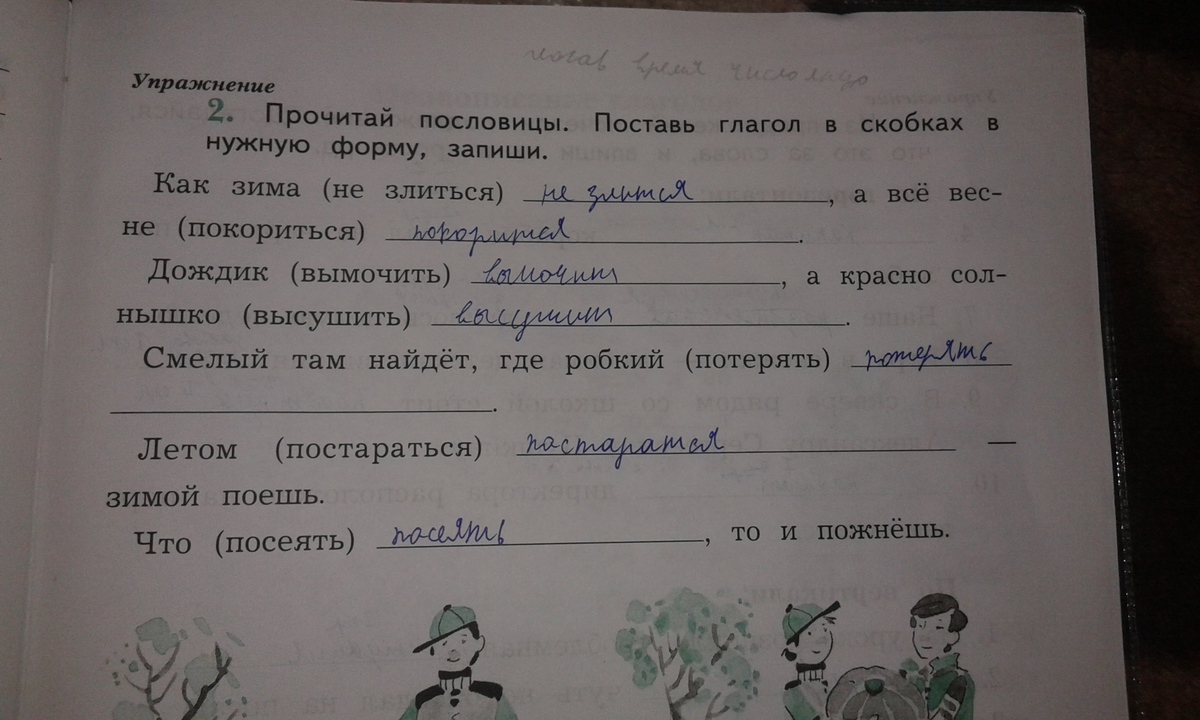 время число лицо
Упражнение
2. Прочитай пословицы. Поставь глагол в скобках в
нужную форму, запиши.
Как зима (не злиться) не злится, а всё вес-
не (покориться) покорится.
Дождик (вымочить) вымочит, а красно сол-
нышко (высушить) высушит.
Смелый там найдёт, где робкий (потерять) потерять
.
Летом (постараться) постаратся —
зимой поешь.
Что (посеять) посеять, то и пожнёшь.